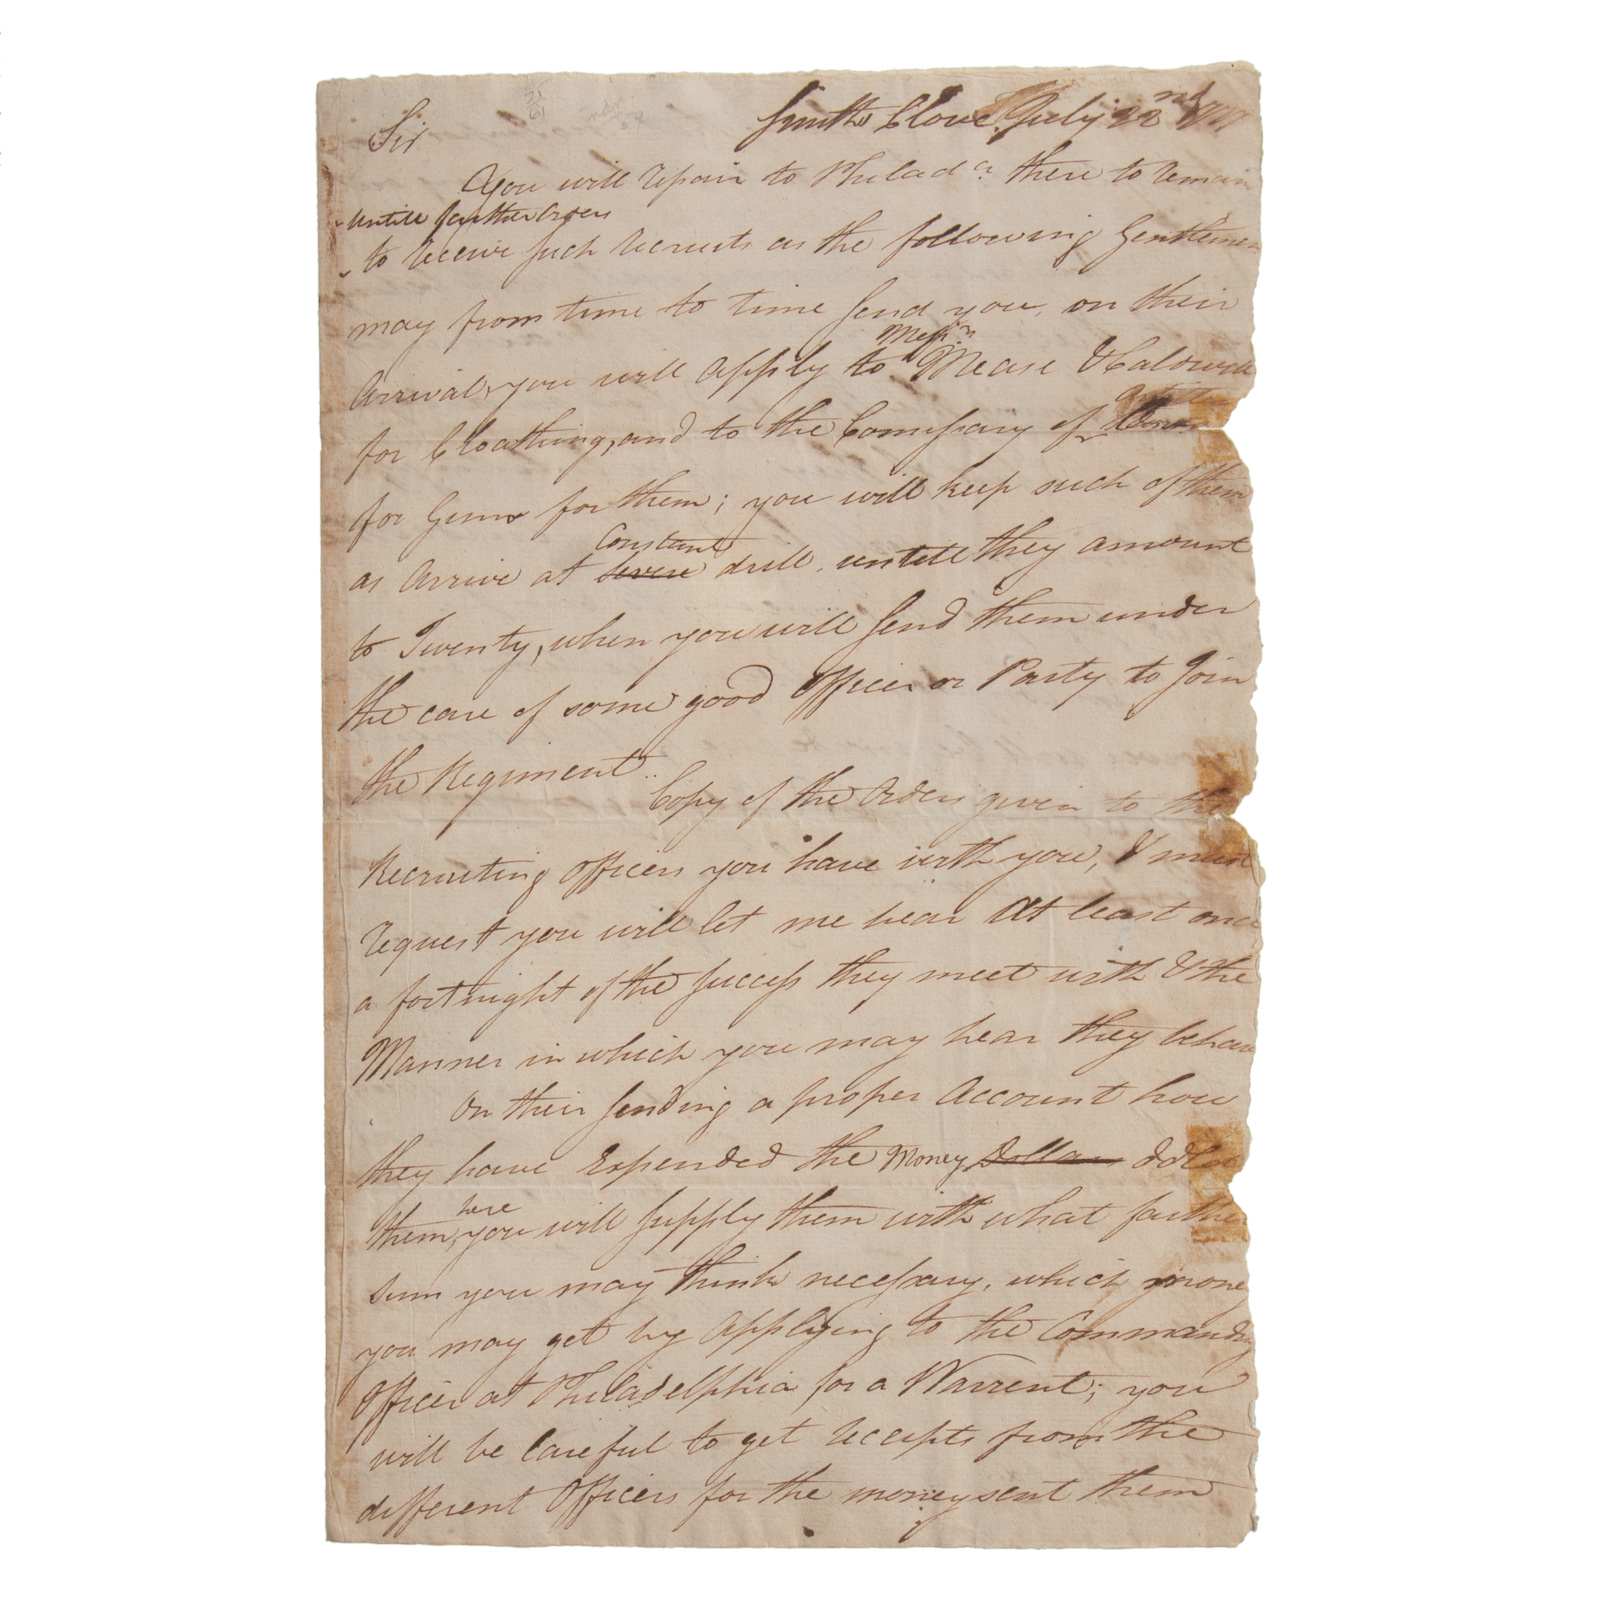 Smiths Clove July 22nd 1777
Sir
You will repair to Philada. there to remain
untill farther Orders
to receive such recruits as the following Gentlemen
may from time to time send you, on their
Messrs
Arrival, you will apply to Mease & Caldwell
for Cloathing, and to the Comissary of
for Guns for them; you will keep such of them
Constant
as Arrive at severe drill, untill they amount
to Twenty, when you will send them under
the care of some good Officer or Party to Join
the Regiment..
Copy of the Orders given to the
Recruiting Officers you have with you, I must
request you will let me hear At least once
a fortnight of the success they meet with & the
Manner in which you may hear they behave
On their sending a proper Account how
they have Expended the Money Dollars
here
them, you will supply them with what farther
sum you may think necessary, which money
you may get by Applying to the Commanding
Officer at Philadelphia for a Warrent; you
will be Careful to get receipts from the
different Officers for the money sent them